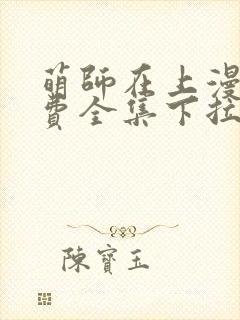 萌師在上漫
費全集下拉
陳寶玉